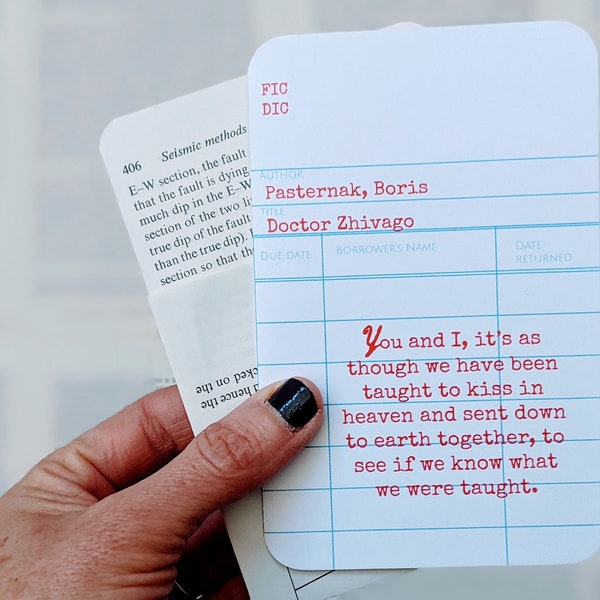 FIC
DIC
AUTHOR
Pasternak, Boris
TITLE
Doctor Zhivago
DUE DATE BORROWER'S NAME DATE RETURNED
You and I, it's as
though we have been
taught to kiss in
heaven and sent down
to earth together, to
see if we know what
we were taught.
406 Seismic methods
E–W section, the fault
that the fault is dying
much dip in the E–W
section of the two li
true dip of the fault
than the true dip).
section so that th
cked on the
hence the